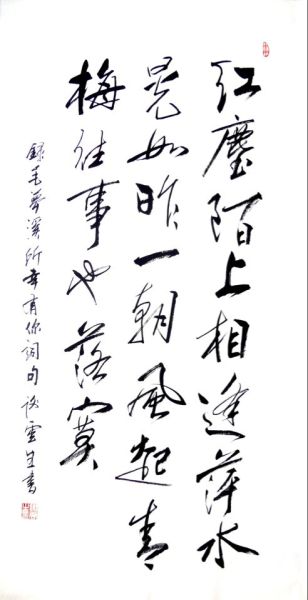 红尘陌上相逢萍水
晃如昨一朝风起青
梅往事也落寞
录毛梦溪所幸有你词句 云生书